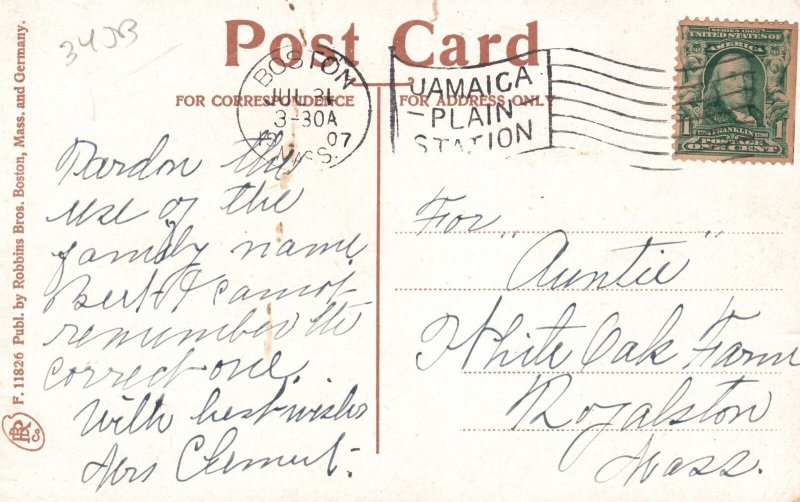 34JB
Post Card
FOR CORRESPONDENCE
FOR ADDRESS ONLY
BOSTON
JUL 31
3-30A
19 07
MASS.
JAMAICA
-PLAIN
STATION
SERIES 1902
UNITED STATES OF AMERICA
1 FRANKLIN 1
POSTAGE
ONE CENT
F. 11826 Publ. by Robbins Bros. Boston, Mass. and Germany.
RB Co
Pardon the
use of the
family name
Bert & I cannot
remember the
correct one
With best wishes
Mrs Clement.
For
"Auntie"
White Oak Farm
Royalston
Mass.